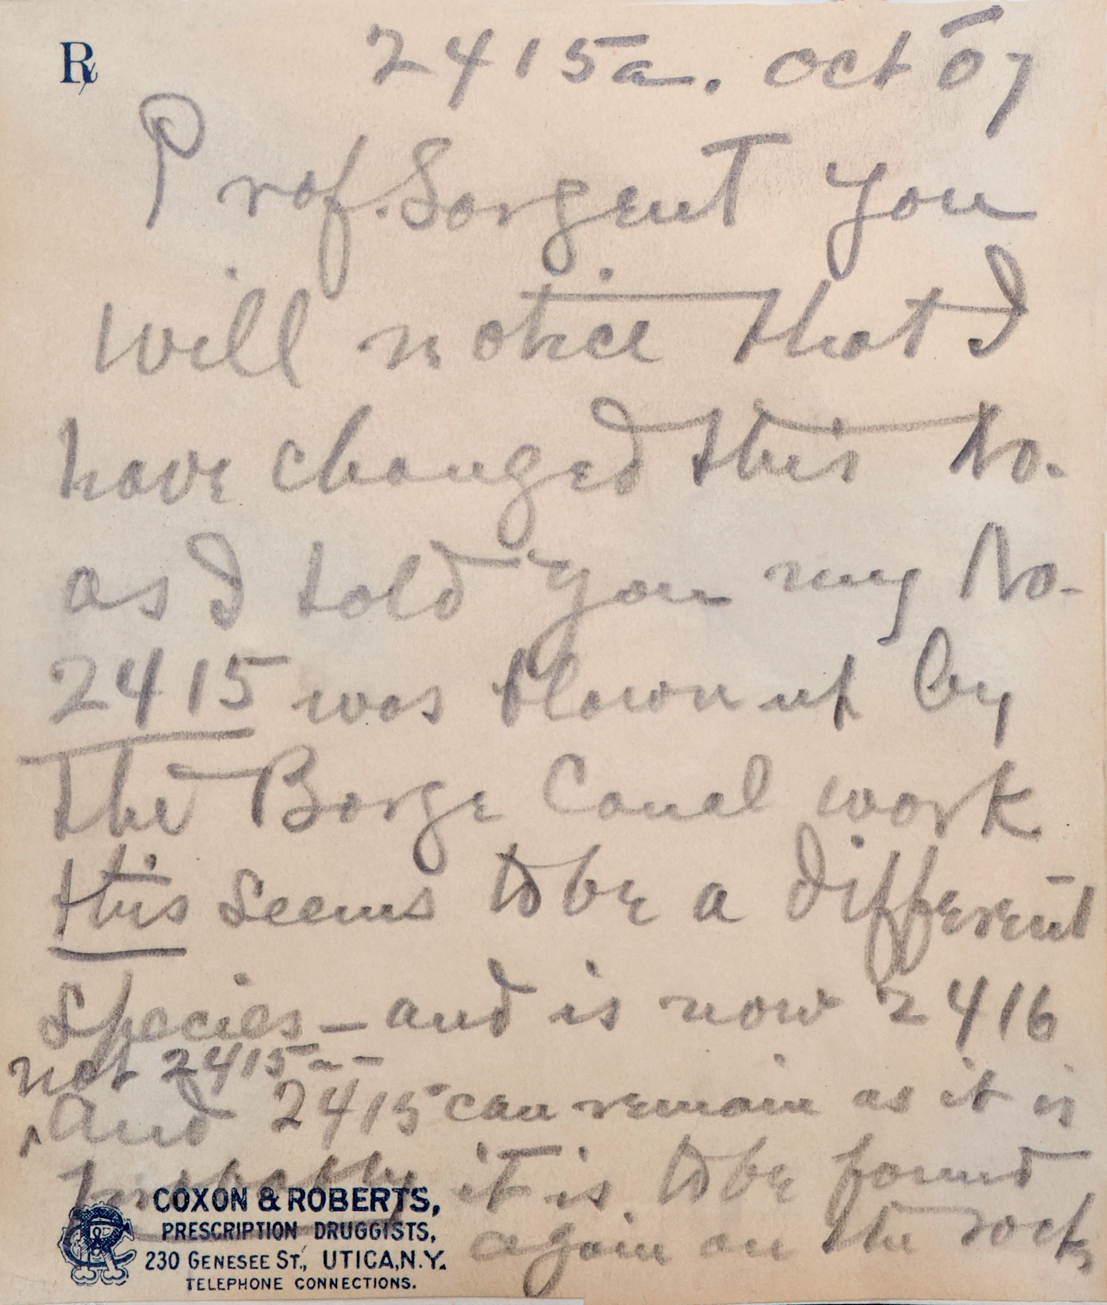 ℞ 2415a. Oct 07
Prof. Sargent you
will notice that I
have changed this No.
as I told you my No.
2415 was blown up by
the Barge Canal work
this seems to be a different
species – and is now 2416
not 2415a –
and 2415 can remain as it is
probably it is to be found
again on the rocks
COXON & ROBERTS,
PRESCRIPTION DRUGGISTS,
230 GENESEE ST., UTICA, N.Y.
TELEPHONE CONNECTIONS.